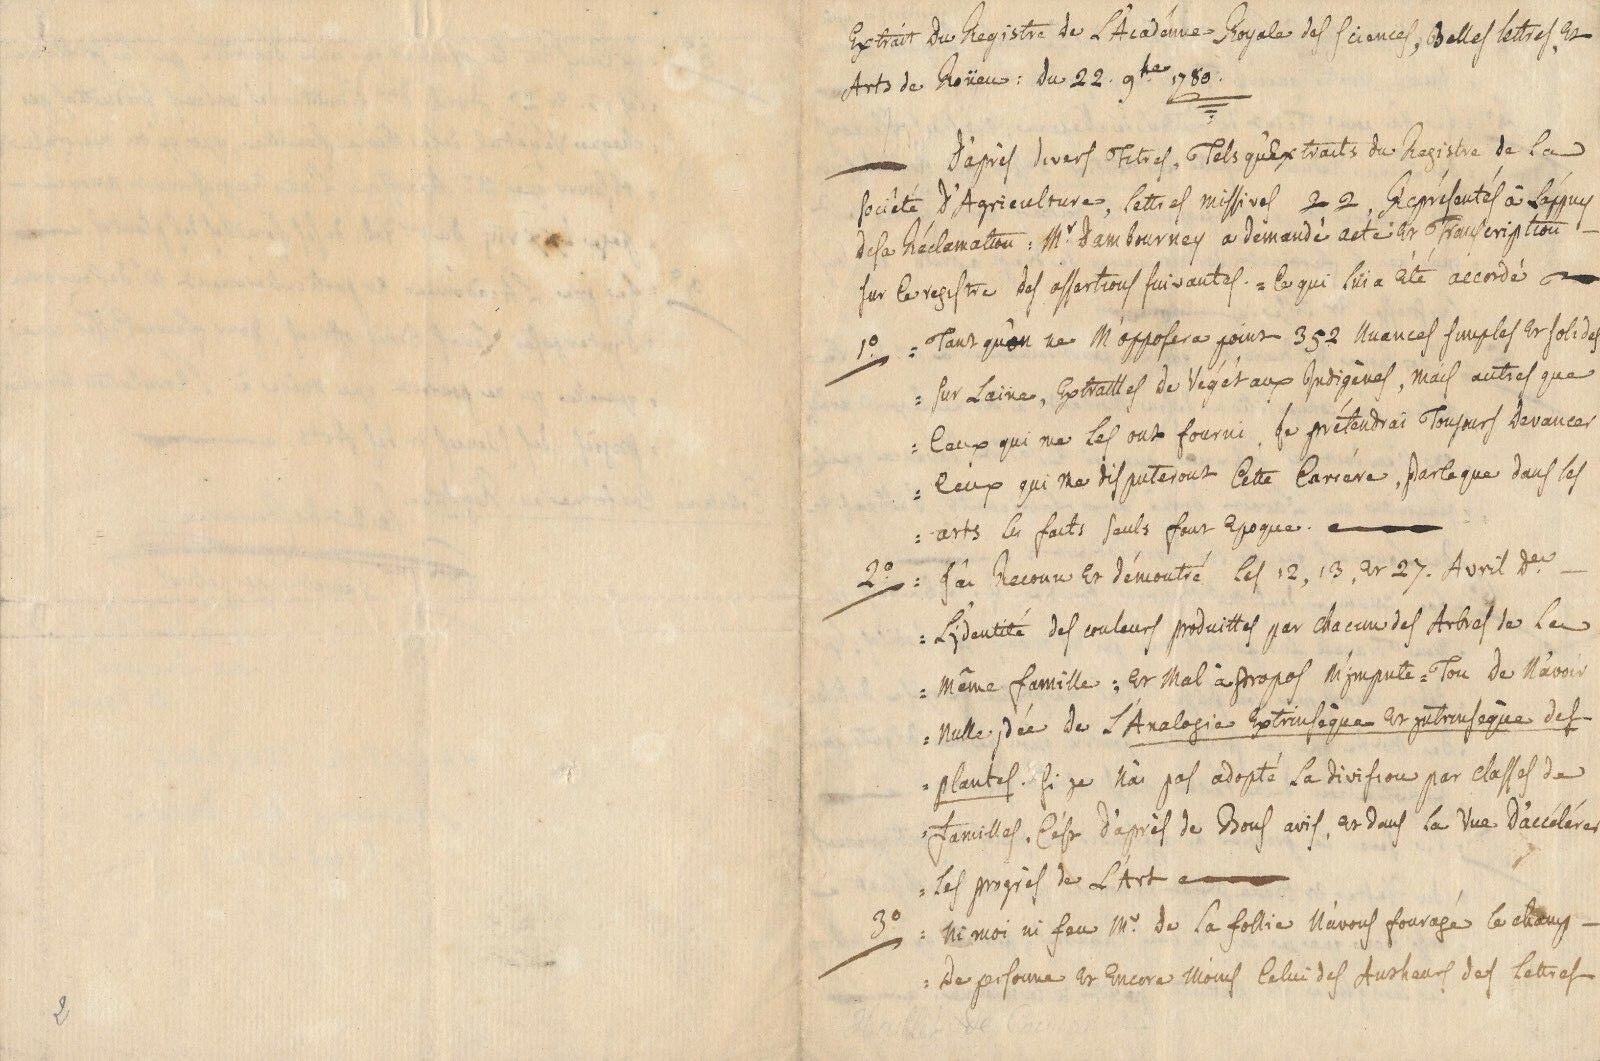 Extrait Du Registre de L'Académie Royale des sciences, Belles lettres, Et
Arts de Roüen : Du 22. 9bre 1780.
D'après divers Titres, Tels qu'Extraits du Registre de La
société D'Agriculture, lettres missives &c &c, Représentés à L'appuy
de sa Réclamation : Mr. Dambourney a demandé acte et Transcription
sur ce registre des assertions suivantes. = Ce qui lui a Eté accordé
1o. = Tant qu'on ne M'opposera point 352 Nuances simples Et solides
= sur Laine, Extraittes de Végétaux Indigènes, mais autres que
= Ceux qui me les ont fourni, Je prétendrai Toujours Devancer
= Ceux qui me disputeront Cette Cariére, Parceque dans les
= arts les faits seuls font Epoque.
2o. = J'ai Reconnu Et démontré Les 12, 13, Et 27. Avril Der
= L'jdentité des couleurs produittes par chacun des Arbres de La
= Même famille ; Et Mal à propos M'jmpute=Ton de N'avoir
= Nulle jdée de L'Analogie Extrinsèque Et jntrinsèque des
= plantes. Si je N'ai pas adopté La division par classes de
= familles, C'est D'après de Bons avis, Et dans la Vue D'accélérer
= Les progrès de L'Art
3o = Ni moi ni feu Mr. De La follie N'avons fouragé le champ
= De personne Et Encore Moins Celui des Autheurs des Lettres
2